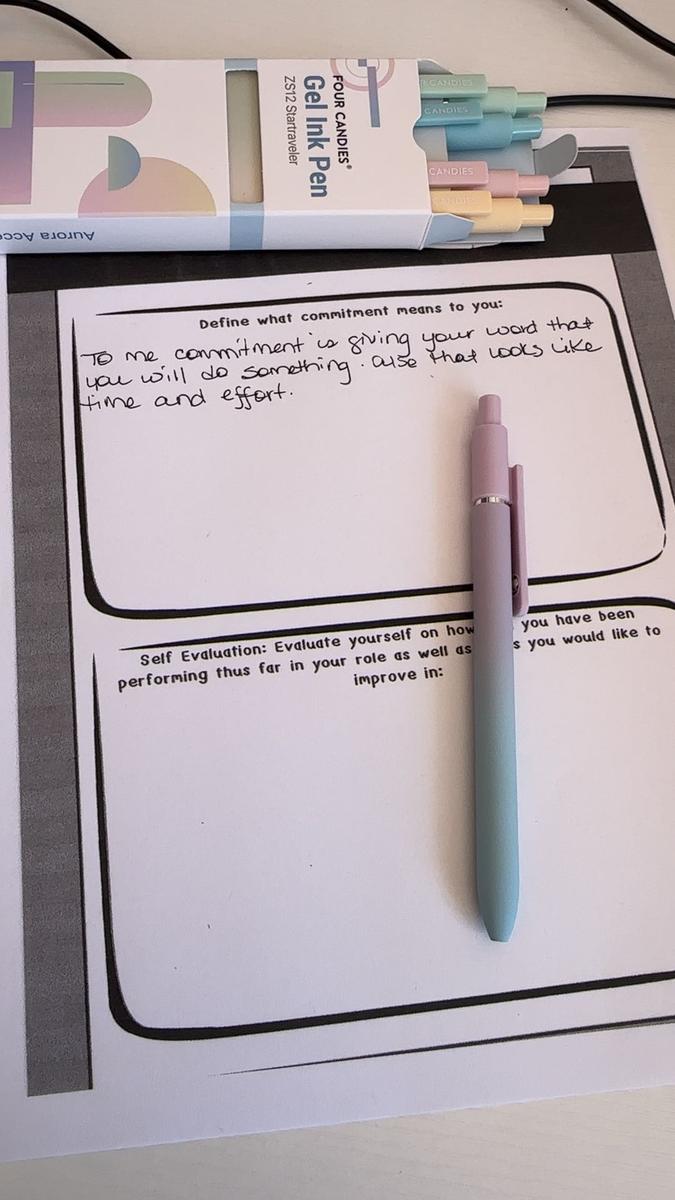 CANDIES
CANDIES
CANDIES
CANDIES
FOUR CANDIES®
Gel Ink Pen
ZS12 Startraveler
Aurora Acce
Define what commitment means to you:
To me commitment is giving your word that
you will do something. alse that looks like
time and effort.
Self Evaluation: Evaluate yourself on how you have been
performing thus far in your role as well as s you would like to
improve in: